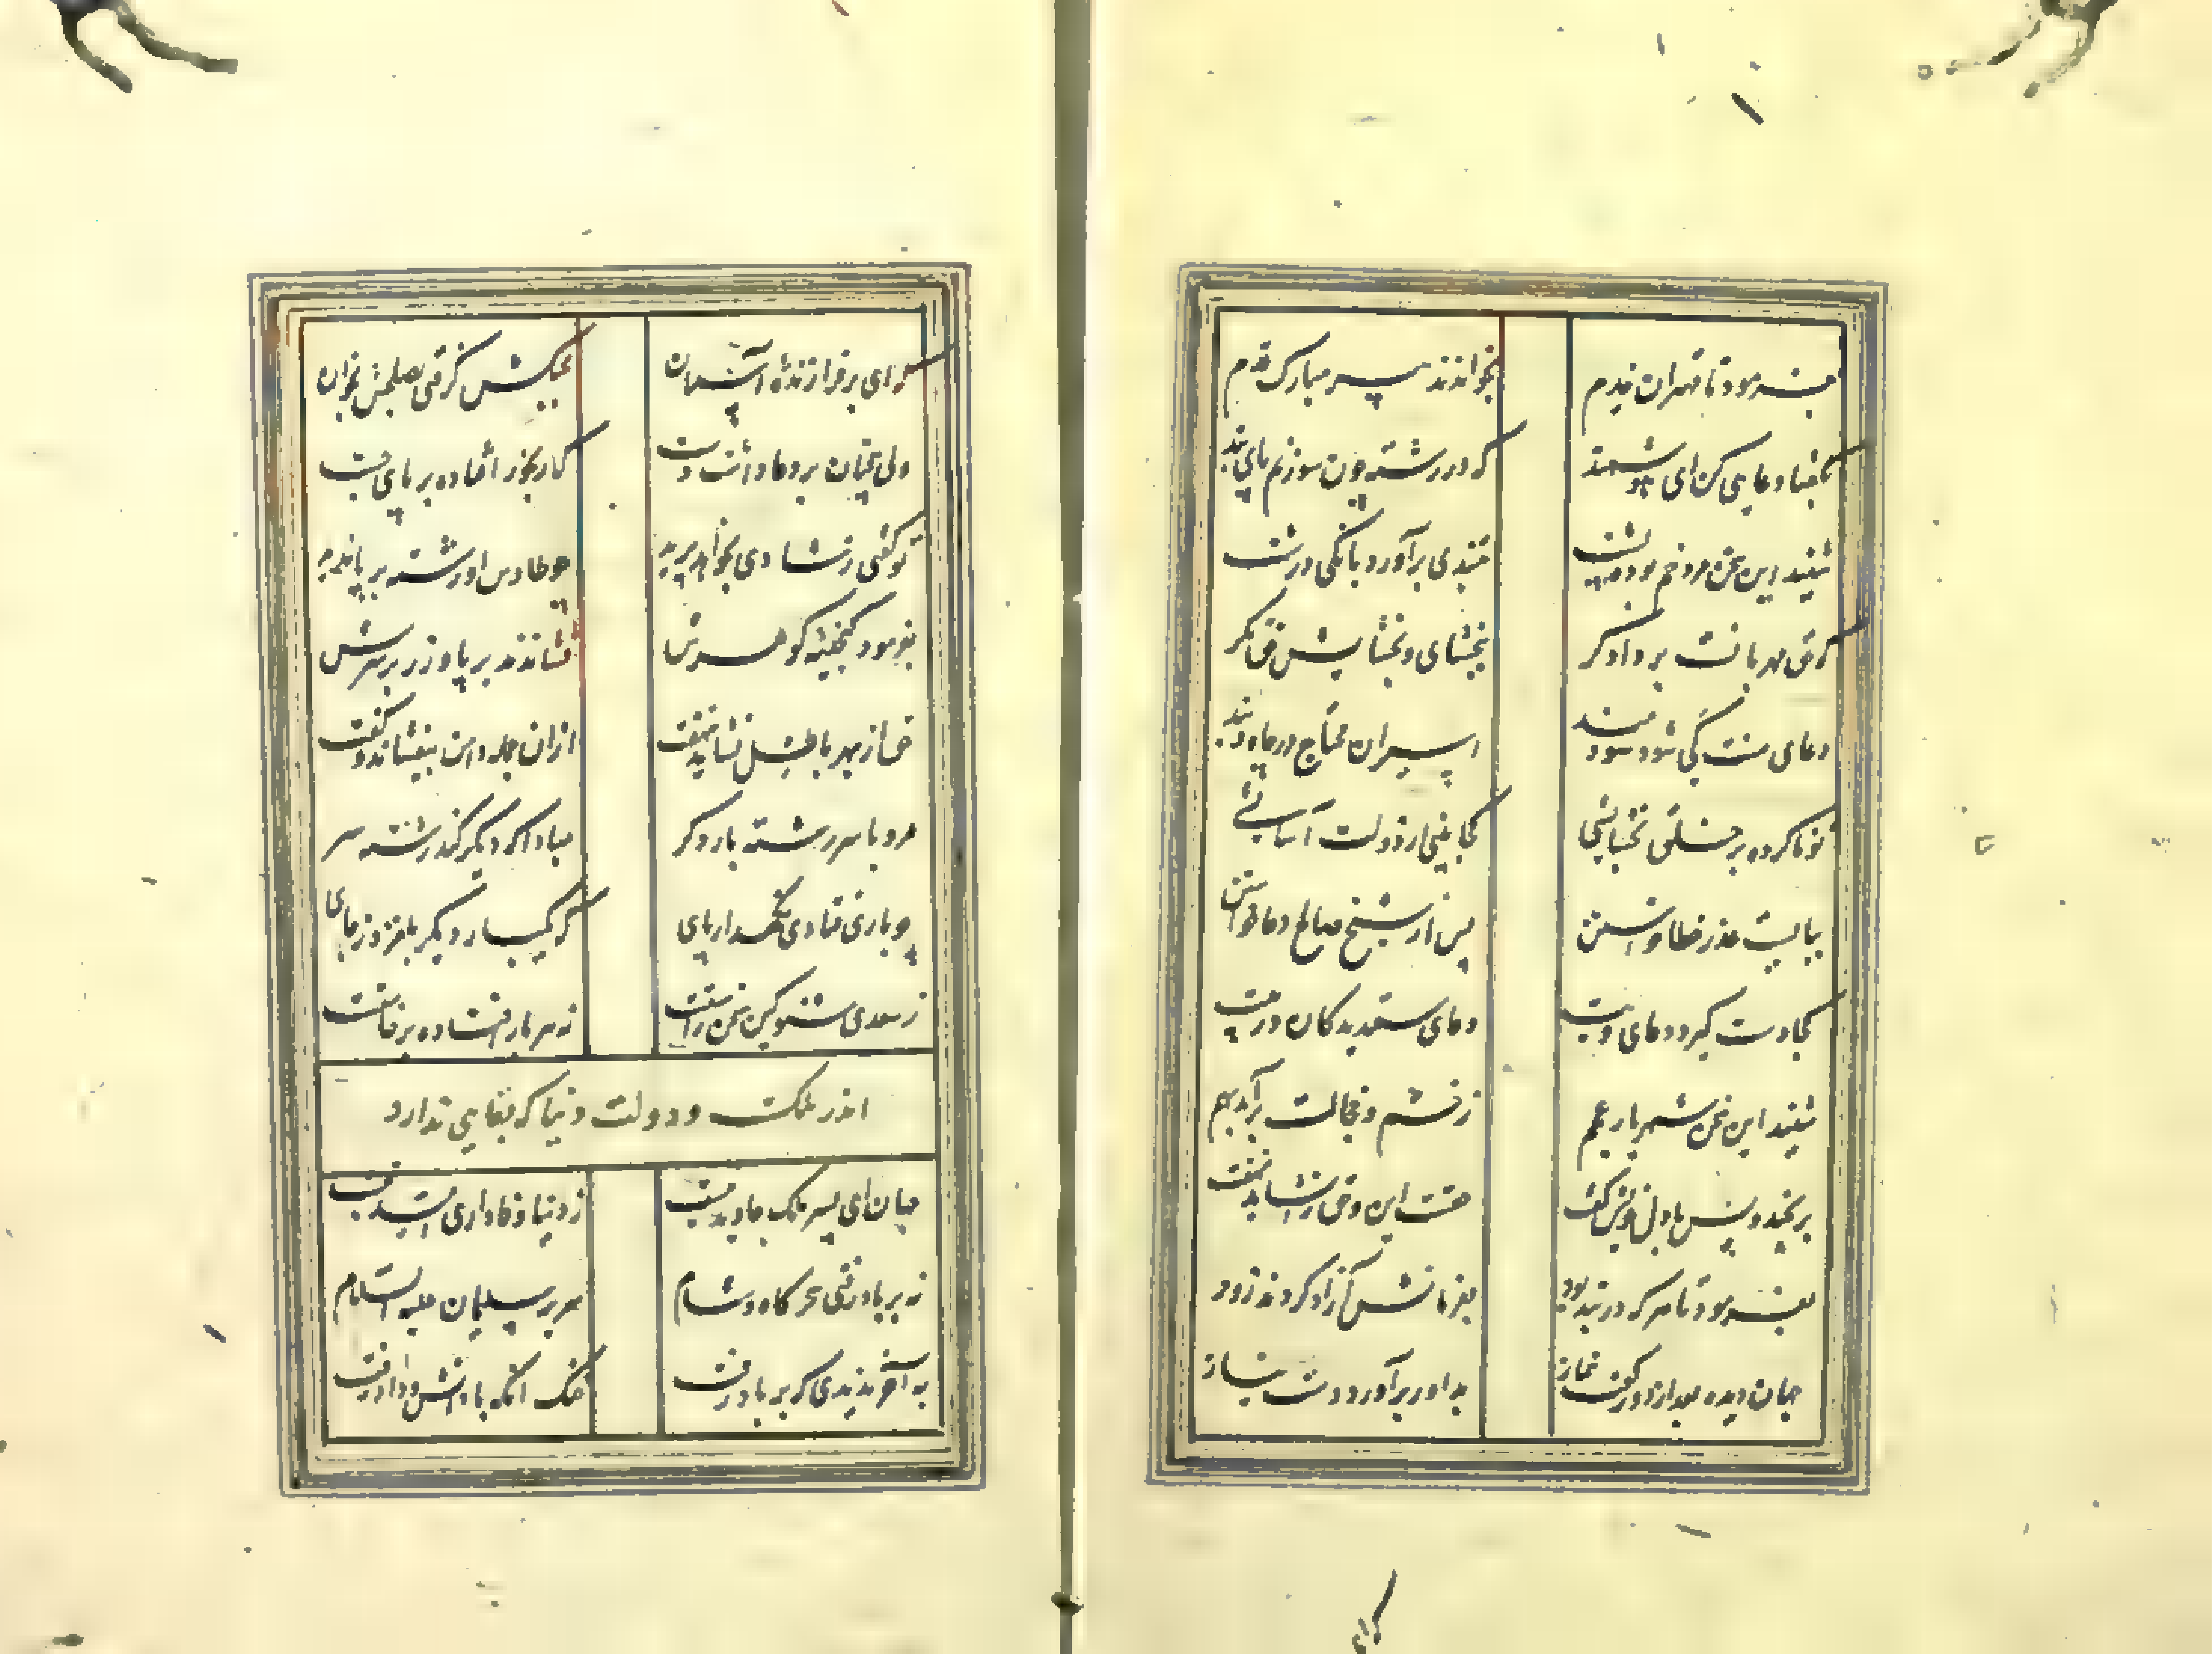 بفرمود تا مهتران خدم بخواندند پیر مبارک قدم
بگفتا دعایی کن ای هوشمند که در رشته چون سوزنم پای بند
شنید این سخن مرد خم بوده پشت بتندی برآورد بانگی درشت
که حق مهربانست بر دادگر ببخشای و بخشایش حق نگر
دعای منت کی شود سودمند اسیران محتاج در چاه و بند
تو ناکرده بر خلق بخشایشی کجا بینی از دولت آسایشی
ببایست عذر خطا خواستن پس از شیخ صالح دعا خواستن
کجا دست گیرد دعای ویت دعای ستمدیدگان در پیت
شنید این سخن شهریار عجم ز خشم و خجالت برآمد بهم
برنجید و پس با دل خویش گفت حقست این و حق را نشاید نهفت
بفرمود تا هر که در بند بود بفرمانش آزاد کردند زود
جهان دیده بعد از دو رکعت نماز بداور برآورد دست نیاز
که ای برفرازنده آسمان بجنگش گرفتی بصلحش بخوان
ولی همچنان بر دعا داشت دست که رنجور افتاده بر پای جست
تو گفتی ز شادی بخواهد پرید چو طاوس او رشته بر پا ندید
بفرمود گنجینه گوهرش فشاندند بر پا و زر بر سرش
حق از بهر باطل نشاید نهفت ازان جمله دامن بیفشاند و گفت
مرو با سر رشته بار دگر مبادا که دیگر کند رشته سر
چو باری فتادی نگهدار پای که یکبار دیگر بلغزد ز جای
ز سعدی شنو کین سخن راستست نه هر بار افتاده برخاستست
اندر ملکت و دولت دنیا که بقایی ندارد
جهان ای پسر ملک جاوید نیست ز دنیا وفاداری امید نیست
نه بر باد رفتی سحرگاه و شام سریر سلیمان علیه السلام
به آخر ندیدی که بر باد رفت خنک آنکه با دانش و داد رفت